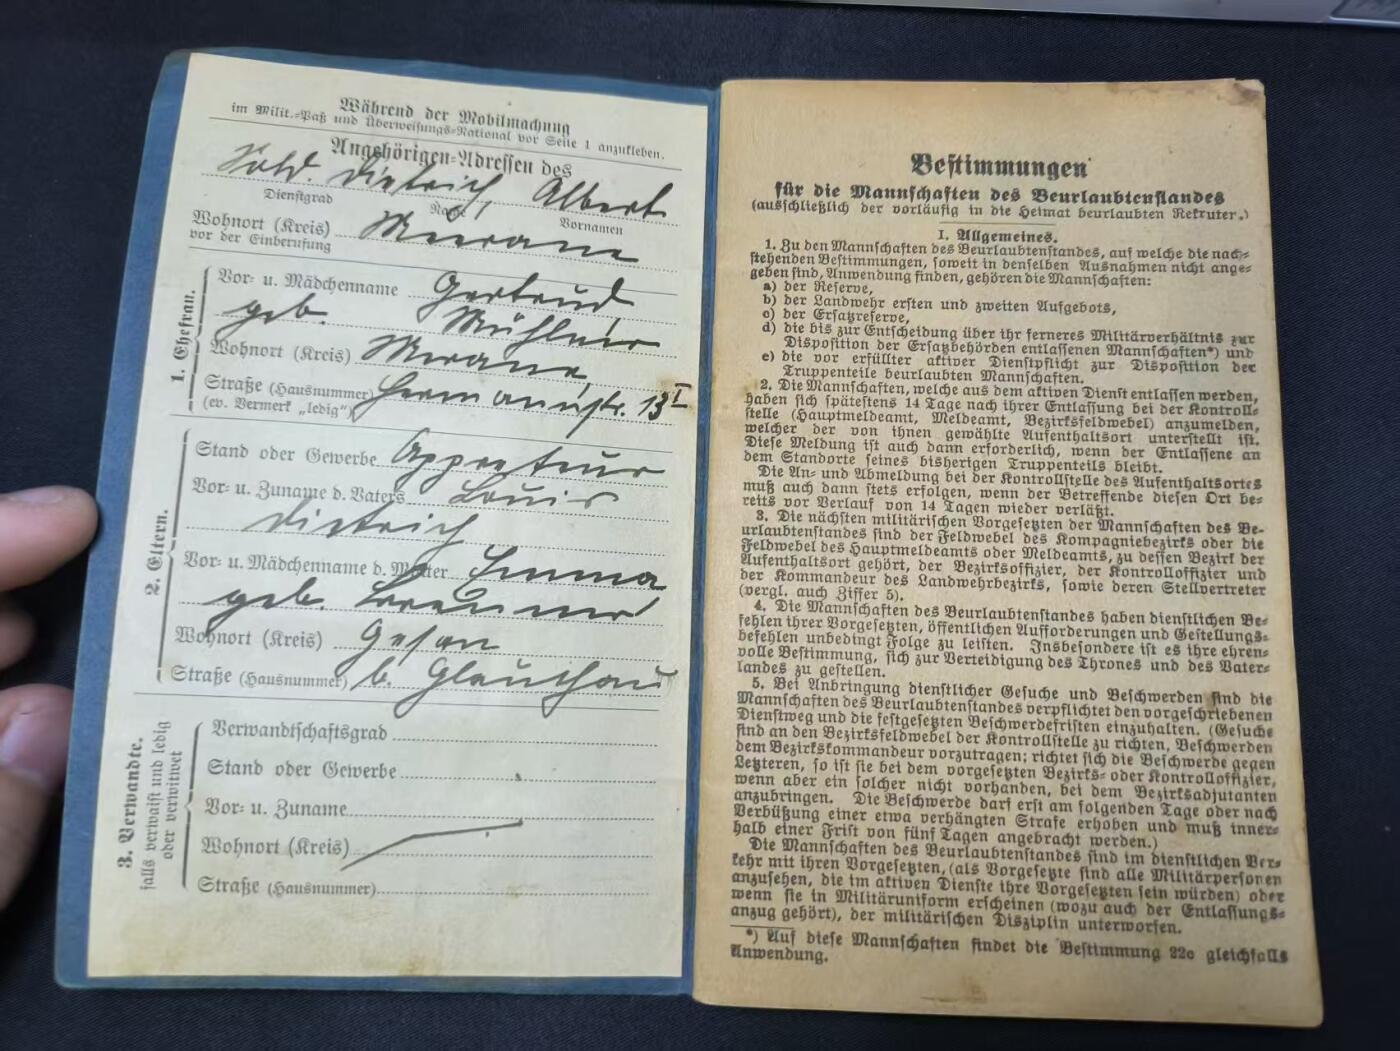 Während der Mobilmachung
im Milit.-Paß und Überweisungs-National vor Seite 1 anzukleben.
Angehörigen-Adressen des
Sold. Dietrich, Albert
Dienstgrad Name Vornamen
Wohnort (Kreis) Meerane
vor der Einberufung
1. Ehefrau.
Vor- u. Mädchenname Gertrud
geb.
Wohnort (Kreis) Meerane
Straße (Hausnummer) Hermannstr. 13 I
(ev. Vermerk „ledig")
2. Eltern.
Stand oder Gewerbe Appreteur
Vor- u. Zuname d. Vaters Louis
Dietrich
Vor- u. Mädchenname d. Mutter Emma
geb.
Wohnort (Kreis) Gesau
Straße (Hausnummer) b. Glauchau
3. Verwandte.
falls verwaist und ledig
oder verwitwet
Verwandtschaftsgrad
Stand oder Gewerbe
Vor- u. Zuname
Wohnort (Kreis)
Straße (Hausnummer)
Bestimmungen
für die Mannschaften des Beurlaubtenstandes
(ausschließlich der vorläufig in die Heimat beurlaubten Rekruten.)
I. Allgemeines.
1. Zu den Mannschaften des Beurlaubtenstandes, auf welche die nach-
stehenden Bestimmungen, soweit in denselben Ausnahmen nicht ange-
geben sind, Anwendung finden, gehören die Mannschaften:
a) der Reserve,
b) der Landwehr ersten und zweiten Aufgebots,
c) der Ersatzreserve,
d) die bis zur Entscheidung über ihr ferneres Militärverhältnis zur
Disposition der Ersatzbehörden entlassenen Mannschaften*) und
e) die vor erfüllter aktiver Dienstpflicht zur Disposition der
Truppenteile beurlaubten Mannschaften.
2. Die Mannschaften, welche aus dem aktiven Dienst entlassen werden,
haben sich spätestens 14 Tage nach ihrer Entlassung bei der Kontroll-
stelle (Hauptmeldeamt, Meldeamt, Bezirksfeldwebel) anzumelden,
welcher der von ihnen gewählte Aufenthaltsort unterstellt ist.
Diese Meldung ist auch dann erforderlich, wenn der Entlassene an
dem Standorte seines bisherigen Truppenteils bleibt.
Die An- und Abmeldung bei der Kontrollstelle des Aufenthaltsortes
muß auch dann stets erfolgen, wenn der Betreffende diesen Ort be-
reits vor Verlauf von 14 Tagen wieder verläßt.
3. Die nächsten militärischen Vorgesetzten der Mannschaften des Be-
urlaubtenstandes sind der Feldwebel des Kompagniebezirks oder die
Feldwebel des Hauptmeldeamts oder Meldeamts, zu dessen Bezirk der
Aufenthaltsort gehört, der Bezirksoffizier, der Kontrolloffizier und
der Kommandeur des Landwehrbezirks, sowie deren Stellvertreter
(vergl. auch Ziffer 5).
4. Die Mannschaften des Beurlaubtenstandes haben dienstlichen Be-
fehlen ihrer Vorgesetzten, öffentlichen Aufforderungen und Gestellungs-
befehlen unbedingt Folge zu leisten. Insbesondere ist es ihre ehren-
volle Bestimmung, sich zur Verteidigung des Thrones und des Vater-
landes zu gestellen.
5. Bei Anbringung dienstlicher Gesuche und Beschwerden sind die
Mannschaften des Beurlaubtenstandes verpflichtet den vorgeschriebenen
Dienstweg und die festgesetzten Beschwerdefristen einzuhalten. (Gesuche
sind an den Bezirksfeldwebel der Kontrollstelle zu richten, Beschwerden
dem Bezirkskommandeur vorzutragen; richtet sich die Beschwerde gegen
Letzteren, so ist sie bei dem vorgesetzten Bezirks- oder Kontrolloffizier,
wenn aber ein solcher nicht vorhanden, bei dem Bezirksadjutanten
anzubringen. Die Beschwerde darf erst am folgenden Tage oder nach
Verbüßung einer etwa verhängten Strafe erhoben und muß inner-
halb einer Frist von fünf Tagen angebracht werden.)
Die Mannschaften des Beurlaubtenstandes sind im dienstlichen Ver-
kehr mit ihren Vorgesetzten, (als Vorgesetzte sind alle Militärpersonen
anzusehen, die im aktiven Dienste ihre Vorgesetzten sein würden) oder
wenn sie in Militäruniform erscheinen (wozu auch der Entlassungs-
anzug gehört), der militärischen Disziplin unterworfen.
*) Auf diese Mannschaften findet die Bestimmung 22c gleichfalls
Anwendung.